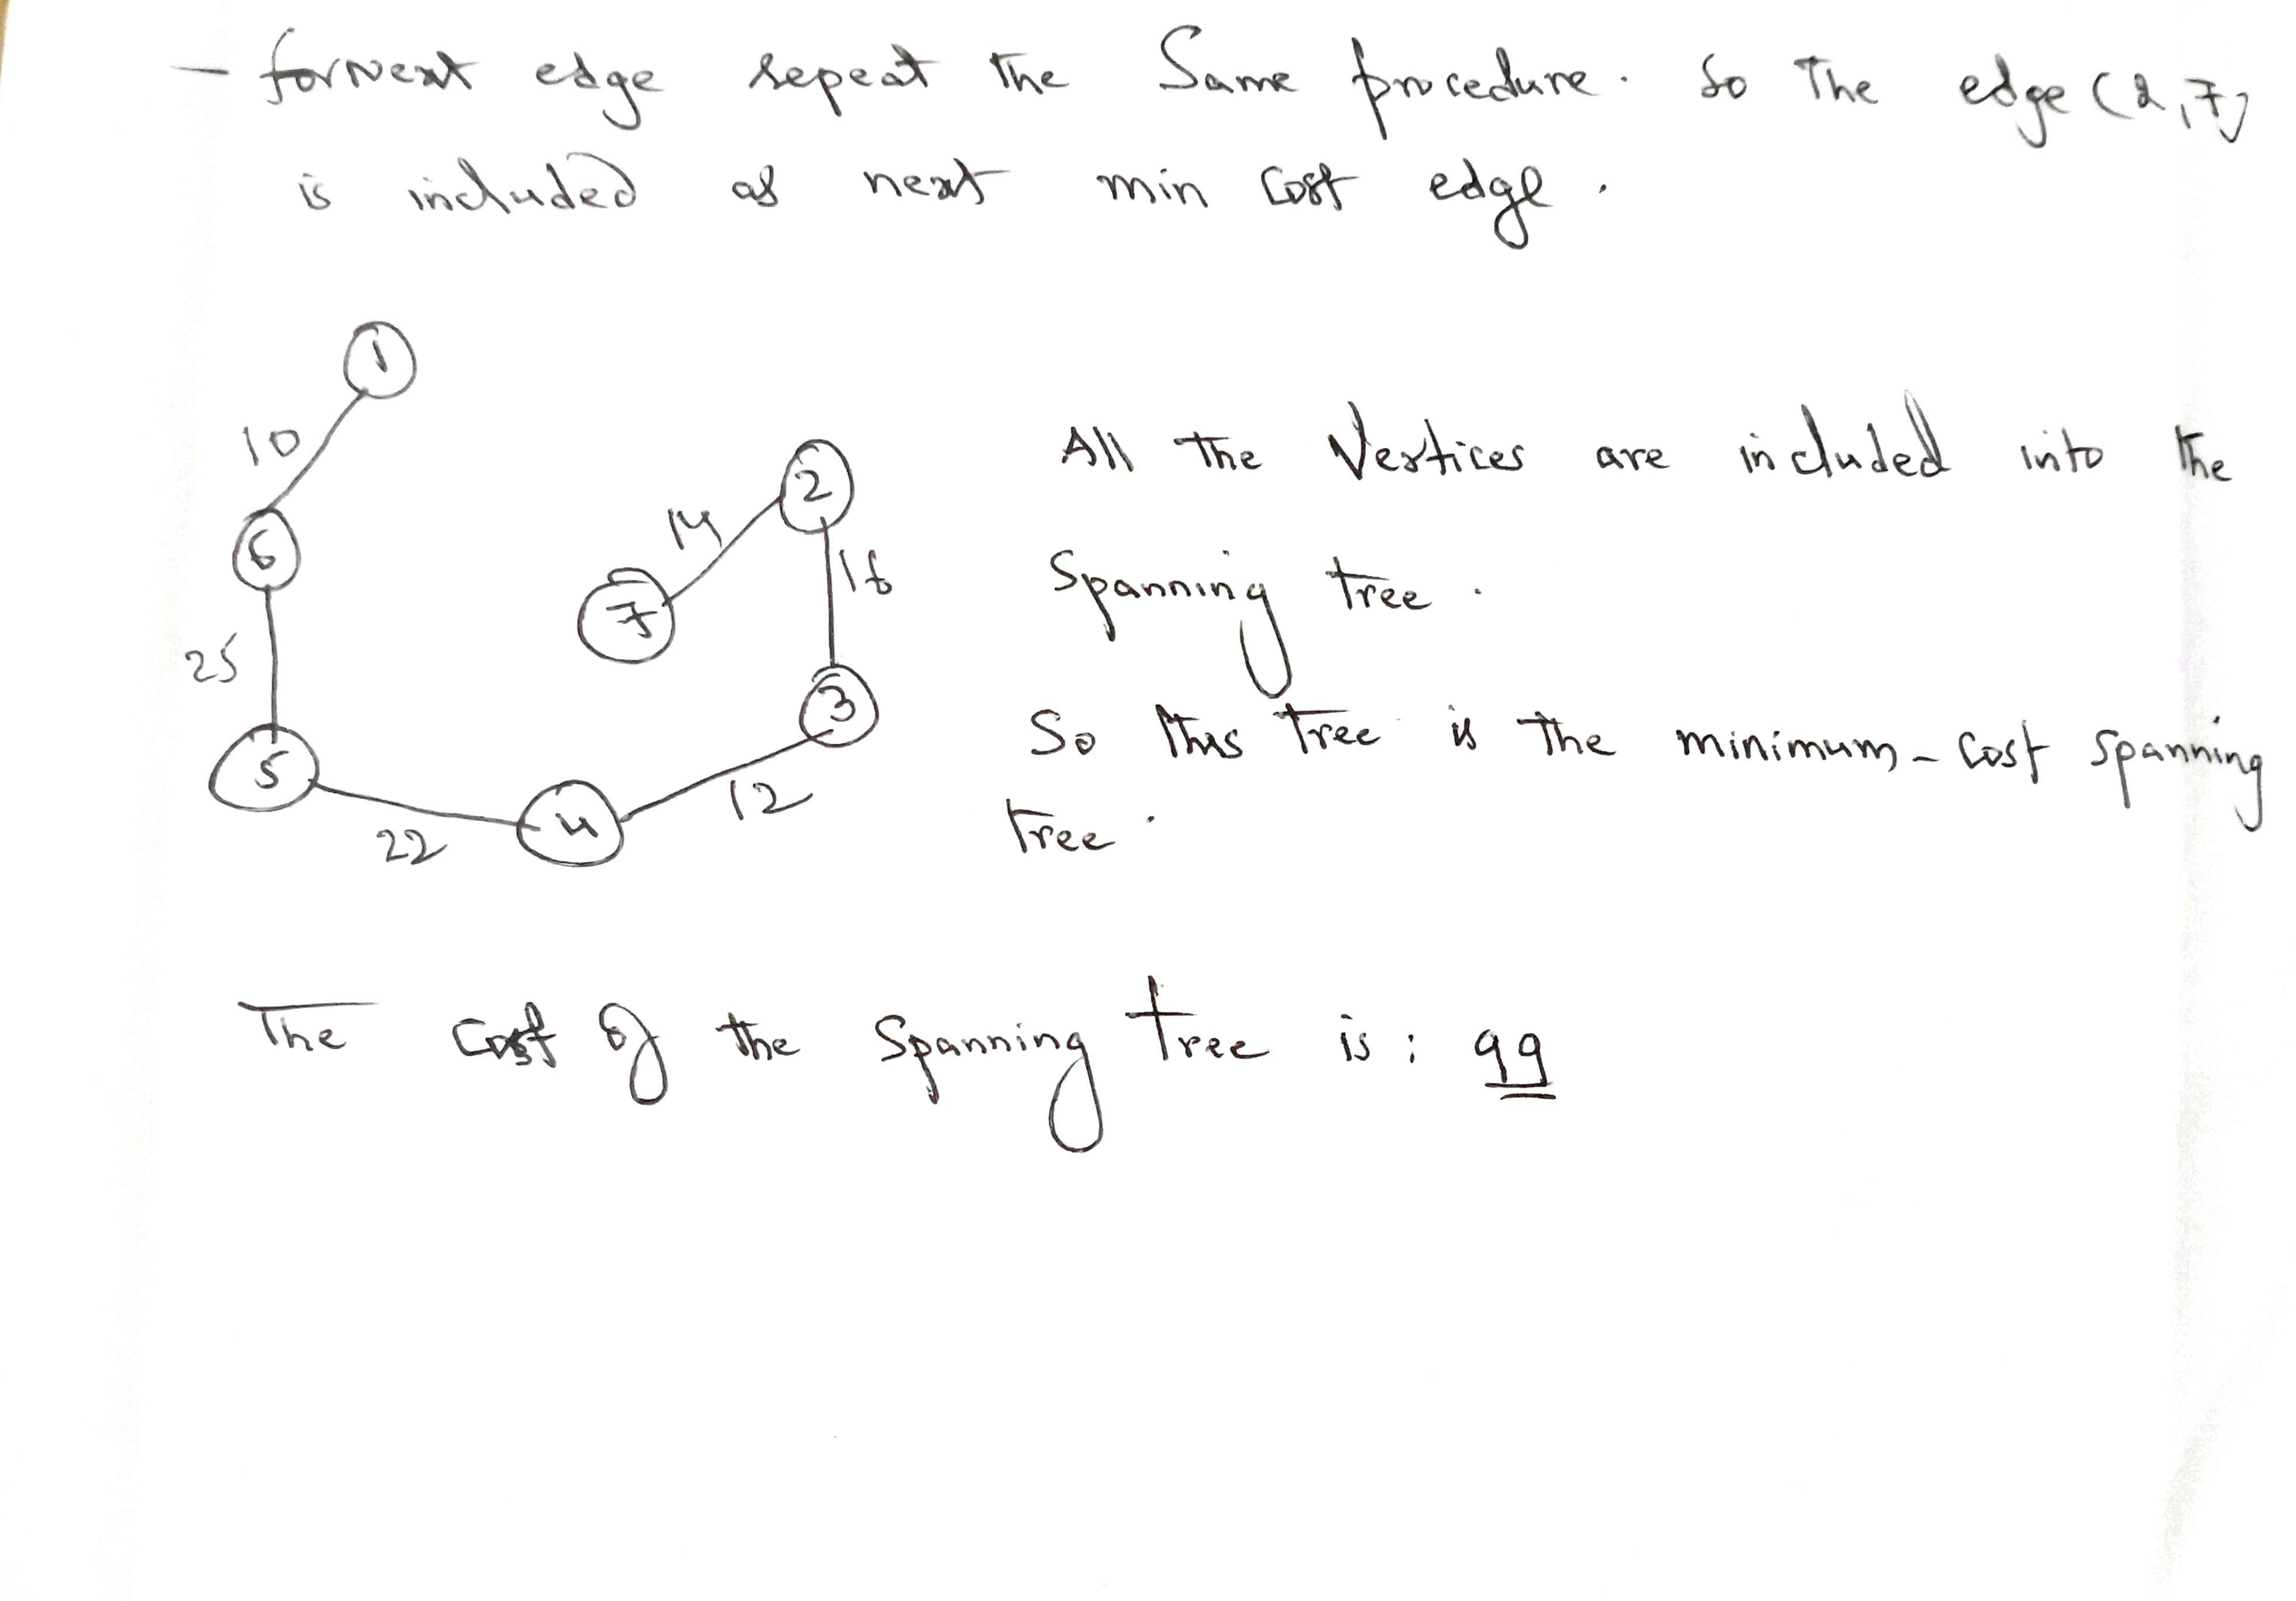 - for Next edge repeat the Same procedure. So The edge (2,7)
is included as next min cost edge.
1
10
2
14
6
16
7
25
3
5
12
4
22
All the Vertices are included into the
Spanning tree.
So this Tree is the minimum-cost spanning
tree.
The cost of the Spanning tree is: 99